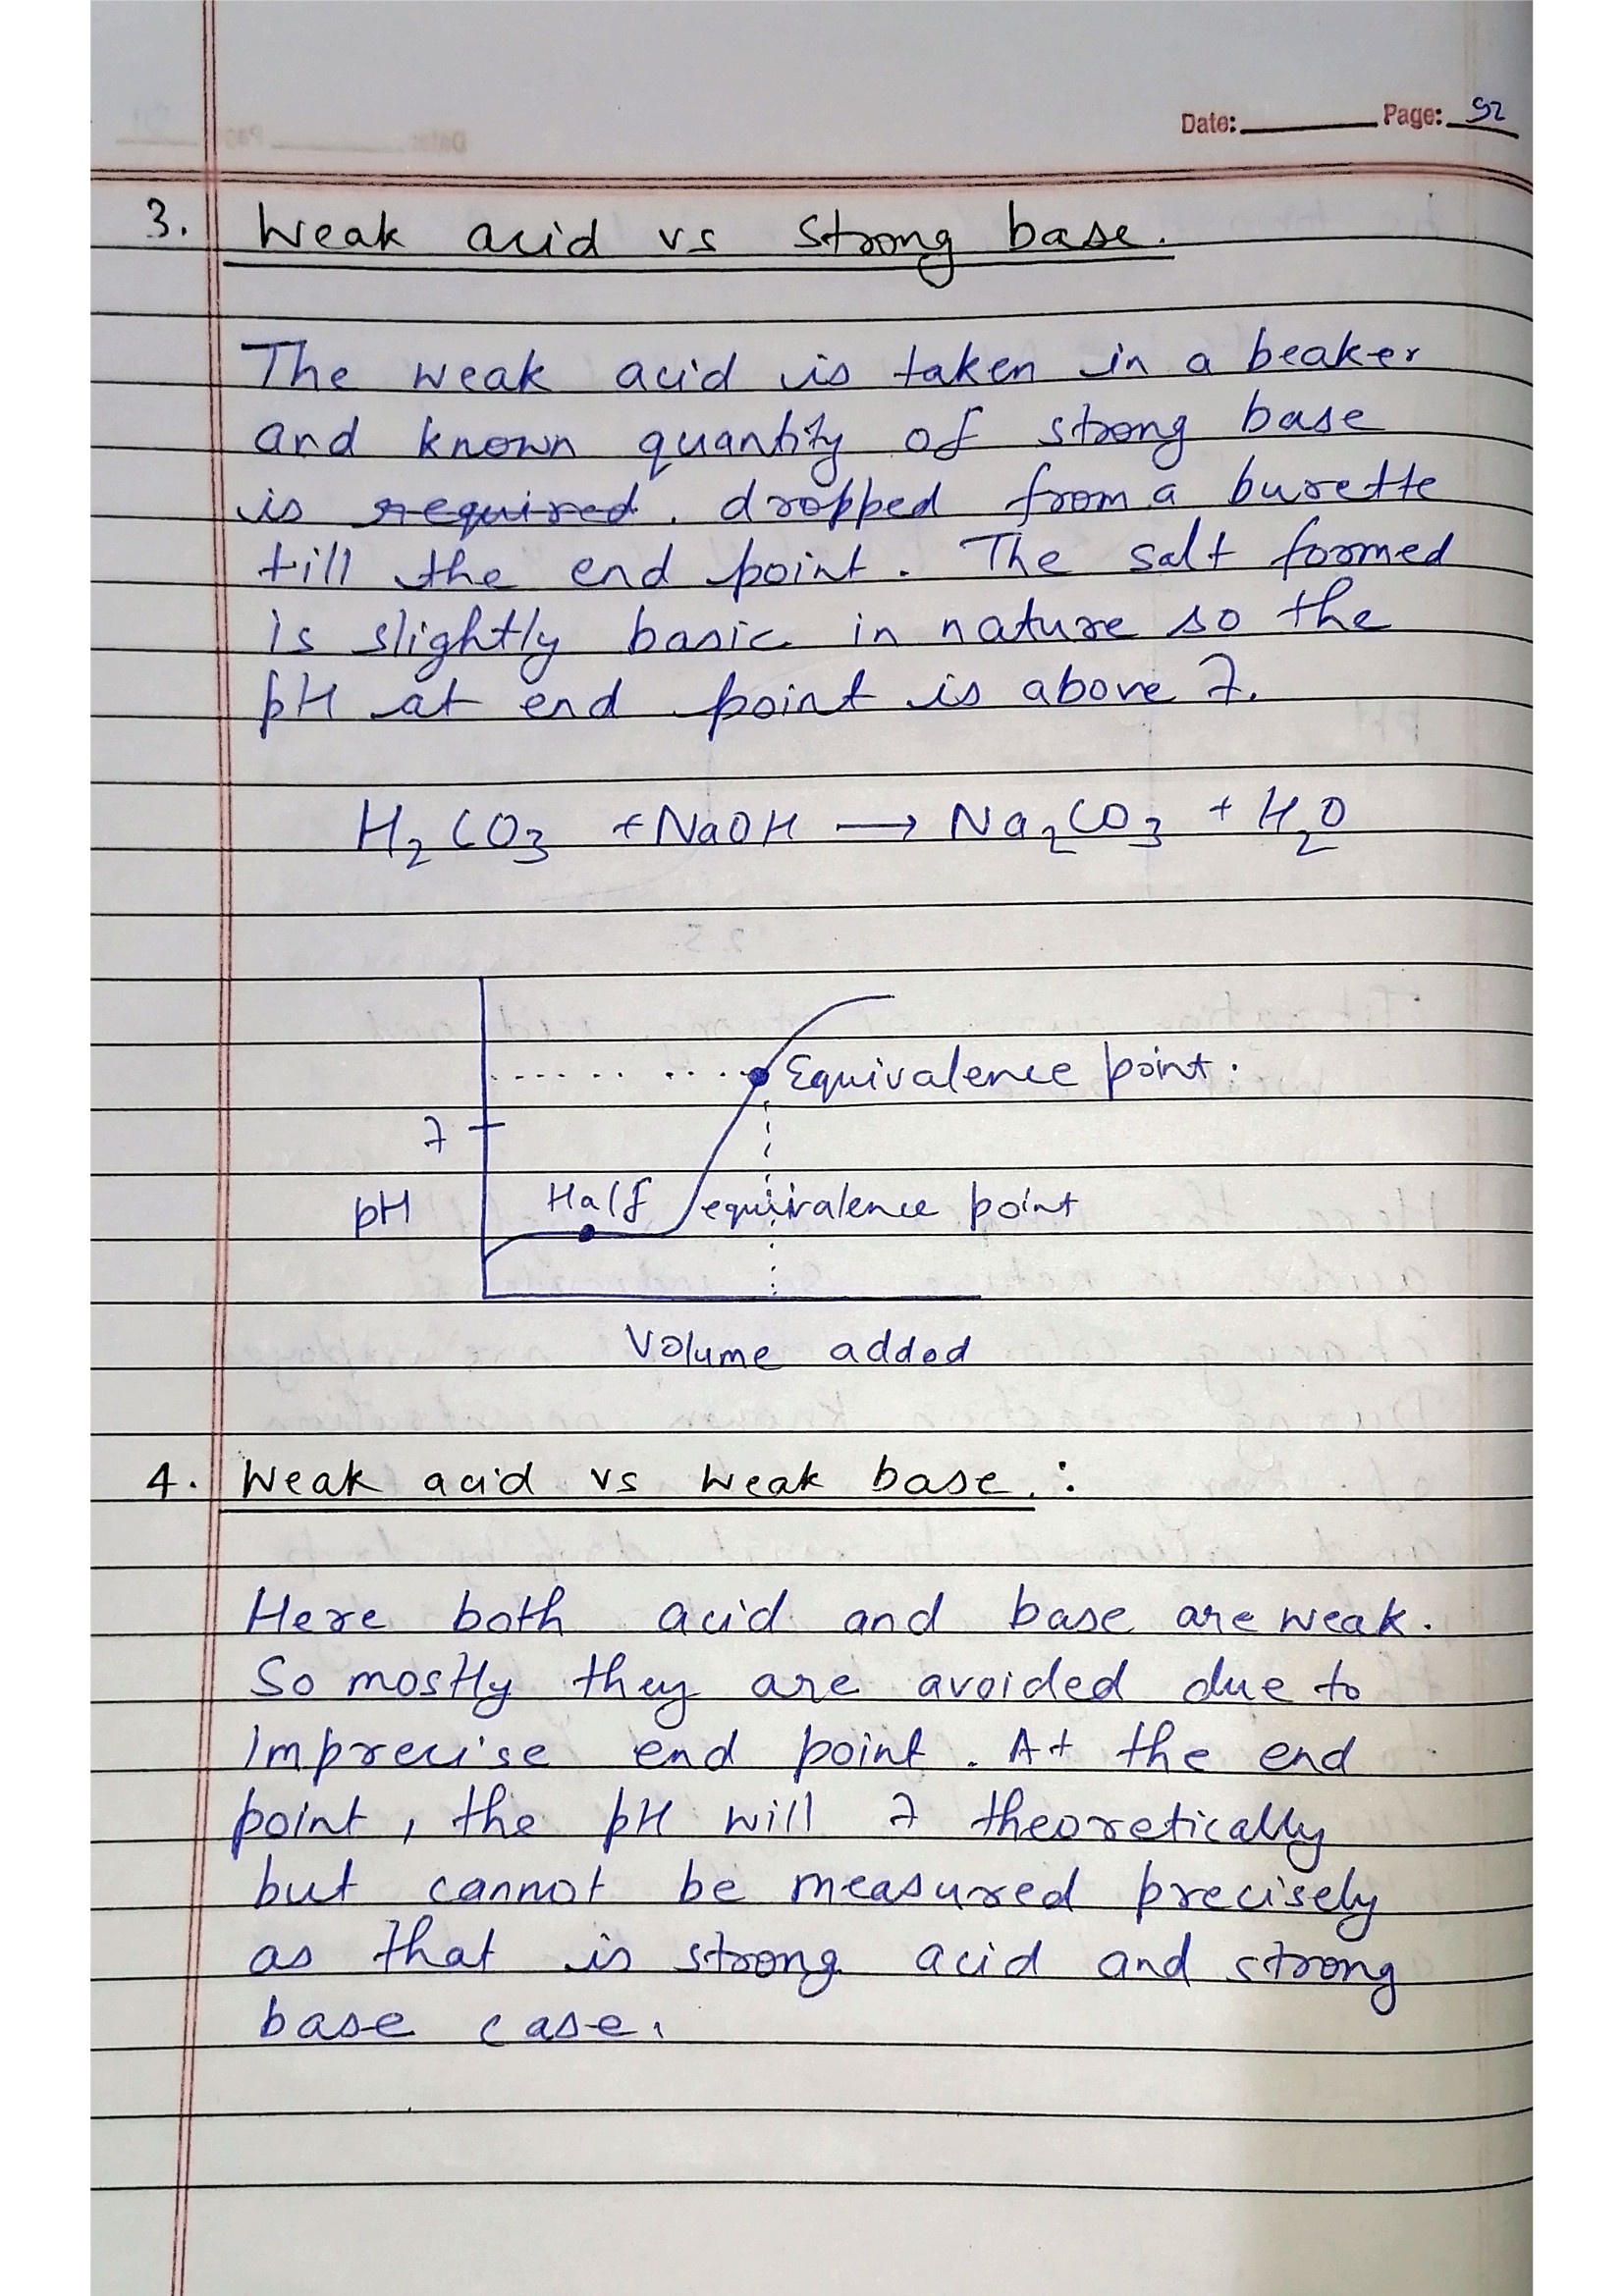 Date: Page: 52
3. Weak acid vs strong base.
The weak acid is taken in a beaker
and known quantity of strong base
is required. dropped from a burette
till the end point. The salt formed
is slightly basic in nature so the
pH at end point is above 7.
H₂CO₃ + NaOH → Na₂CO₃ + H₂O
Equivalence point.
7
Half equivalence point
pH
Volume added
4. Weak acid vs weak base. :
Here both acid and base are weak.
So mostly they are avoided due to
imprecise end point. At the end
point, the pH will 7 theoretically
but cannot be measured precisely
as that is strong acid and strong
base case.